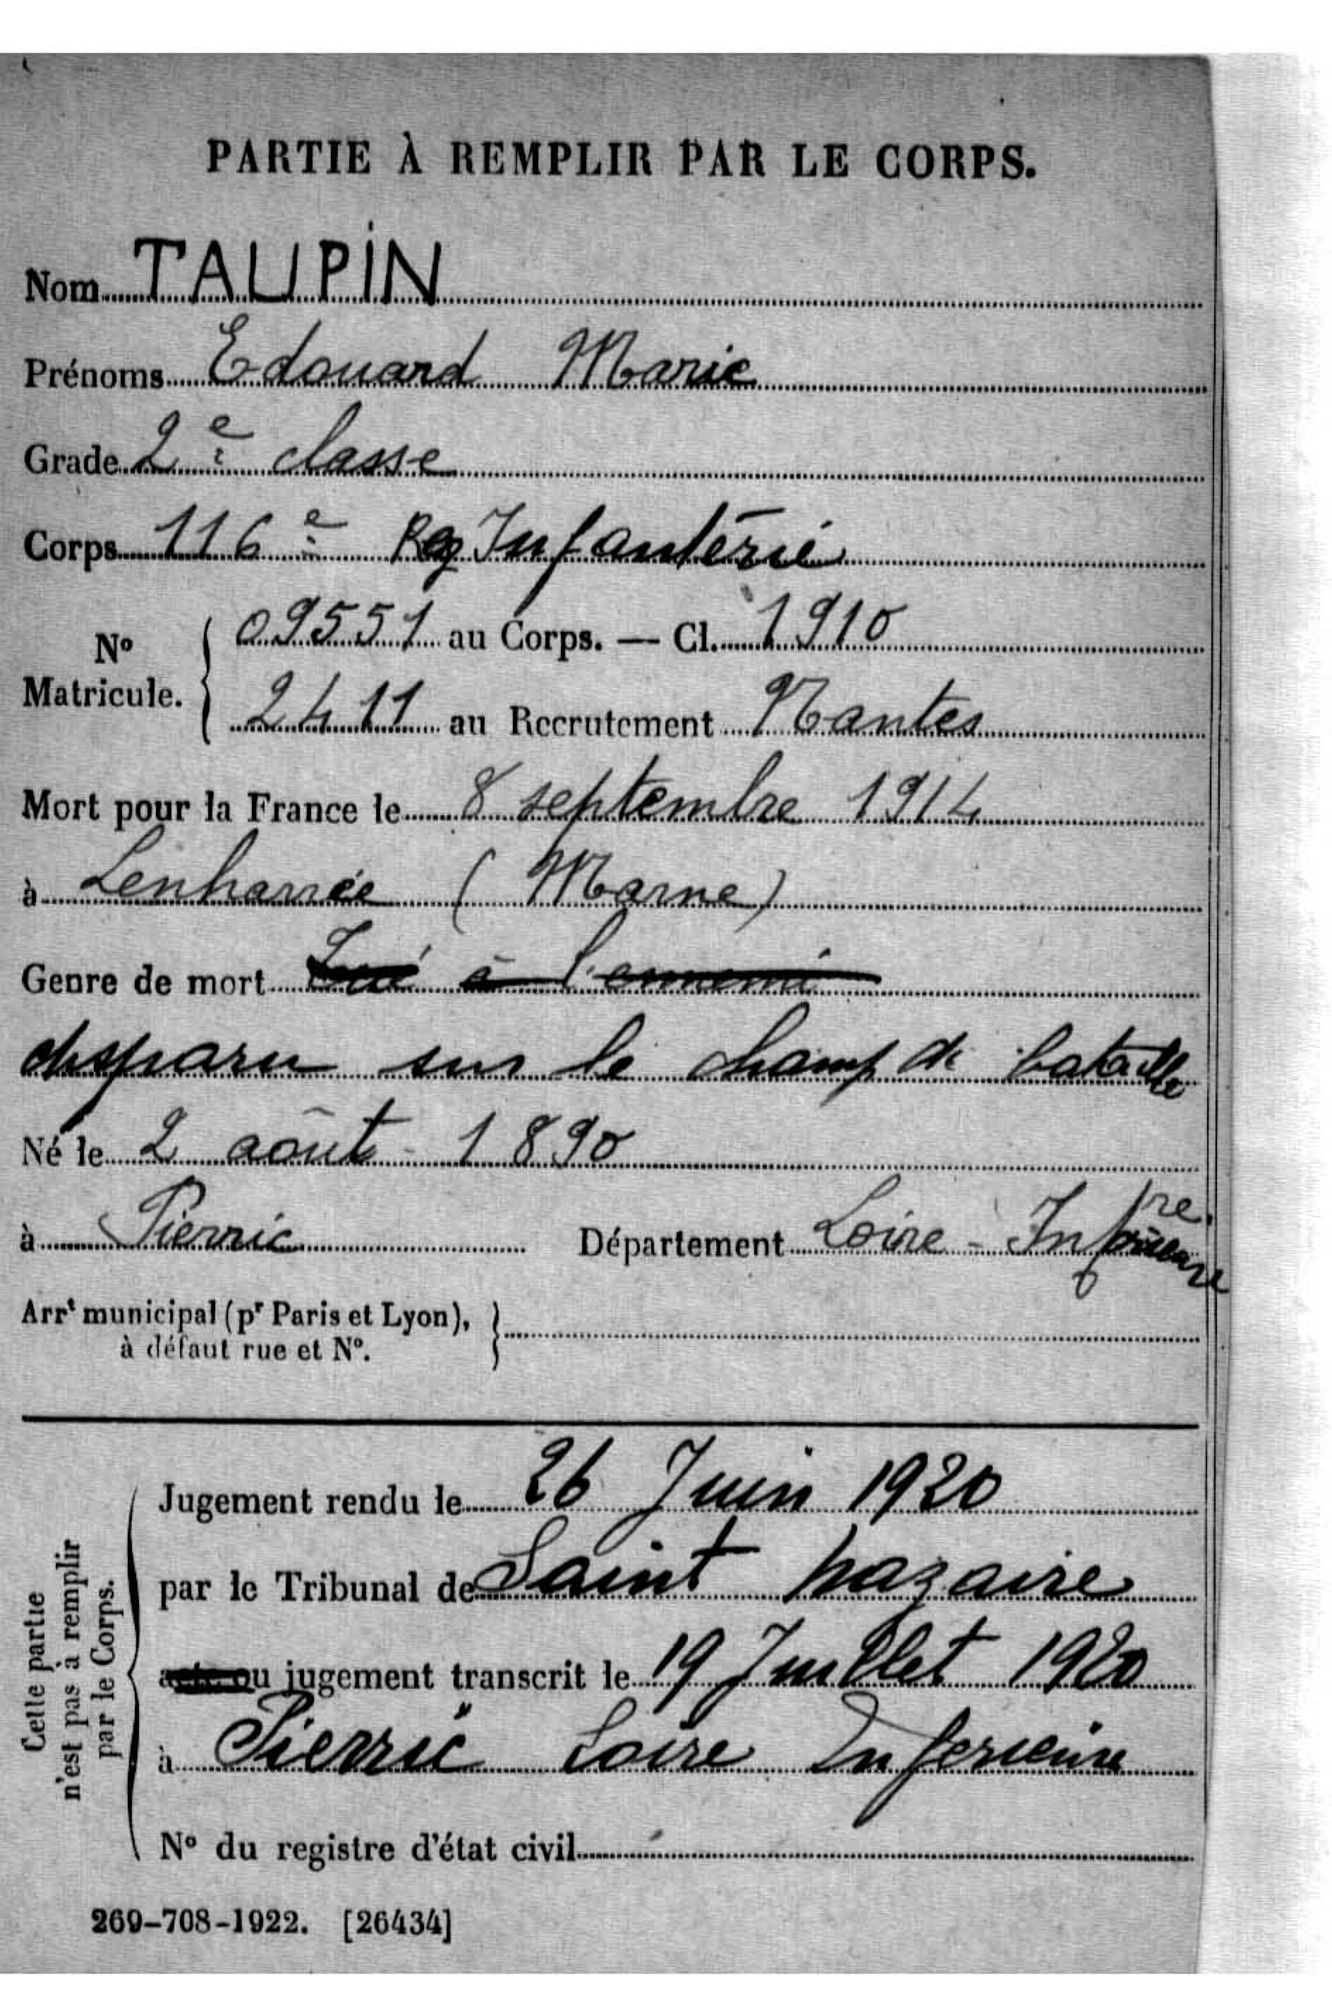 PARTIE À REMPLIR PAR LE CORPS.
Nom TAUPIN
Prénoms Edouard Marie
Grade 2e classe
Corps 116e Reg Infanterie
No Matricule. { 09551 au Corps. — Cl. 1910
2411 au Recrutement Nantes
Mort pour la France le 8 septembre 1914
à Lenharrée (Marne)
Genre de mort Tué à l'ennemi
disparu sur le champ de bataille
Né le 2 août 1890
à Pierric Département Loire-Inférieure
Arrt municipal (pr Paris et Lyon), }
à défaut rue et No.
Jugement rendu le 26 Juin 1920
par le Tribunal de Saint Nazaire
acte ou jugement transcrit le 19 Juillet 1920
à Pierric Loire Inferieure
No du registre d'état civil
Cette partie
n'est pas à remplir
par le Corps.
269-708-1922. [26434]